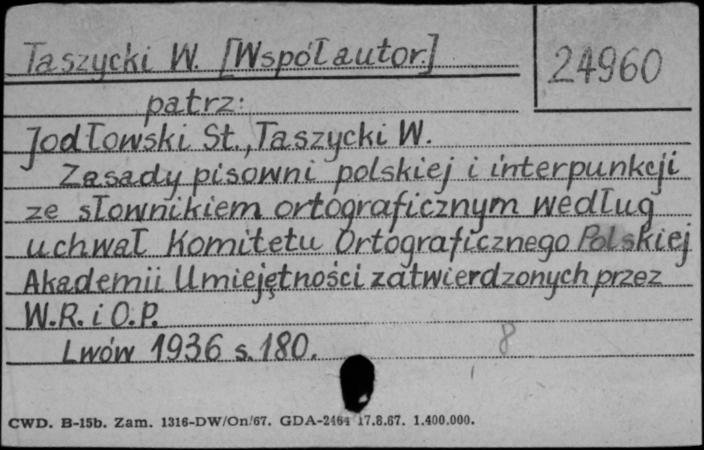 Taszycki W. [Współautor]
24960
patrz:
Jodłowski St., Taszycki W.
Zasady pisowni polskiej i interpunkcji
ze słownikiem ortograficznym według
uchwał Komitetu Ortograficznego Polskiej
Akademii Umiejętności zatwierdzonych przez
W.R. i O.P.
Lwów 1936 s. 180.
8
CWD. B-15b. Zam. 1316-DW/On/67. GDA-2464 17.8.67. 1.400.000.